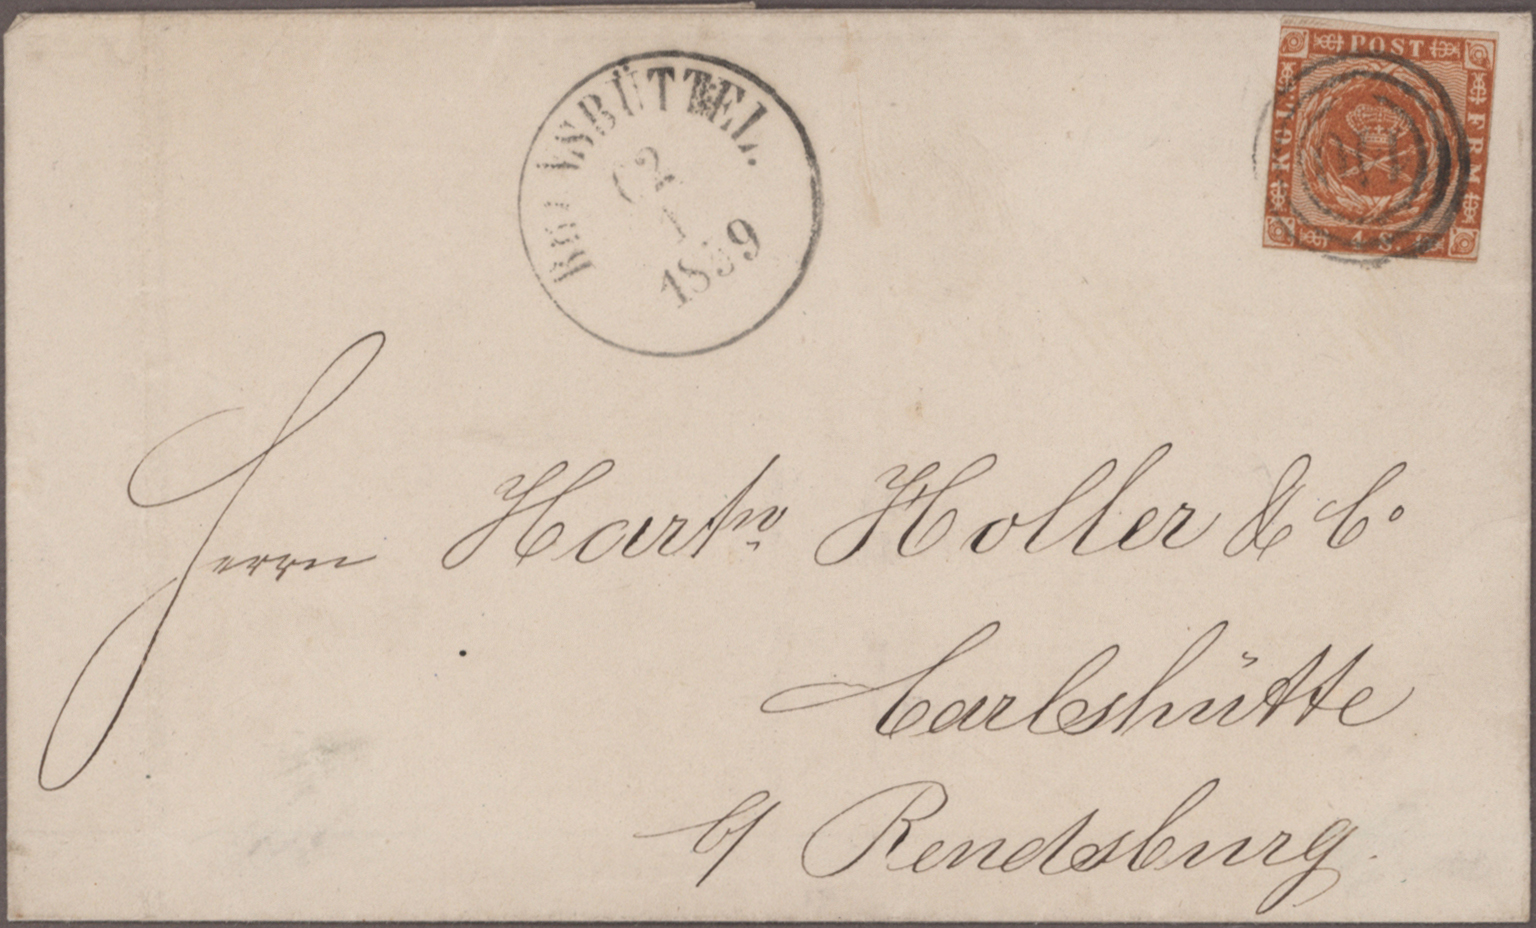 BRUNSBÜTTEL.
2
1
1859
KGL POST FRM
4 S
Herrn Hartw Holler & Co
Carlshütte
b/ Rendsburg.